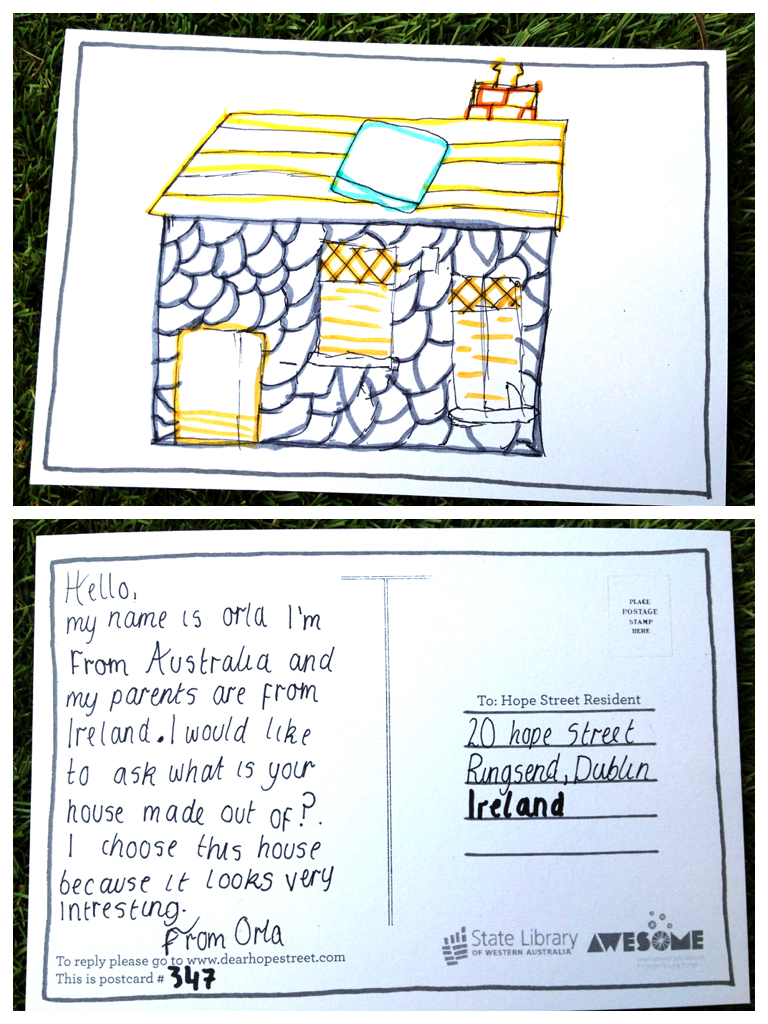 Hello,
my name is orla I'm
From Australia and
my parents are from
Ireland. I would like
to ask what is your
house made out of?.
I choose this house
because it looks very
intresting.
from Orla
To reply please go to www.dearhopestreet.com
This is postcard # 347
PLACE
POSTAGE
STAMP
HERE
To: Hope Street Resident
20 hope Street
Ringsend, Dublin
Ireland
State Library
OF WESTERN AUSTRALIA
AWESOME